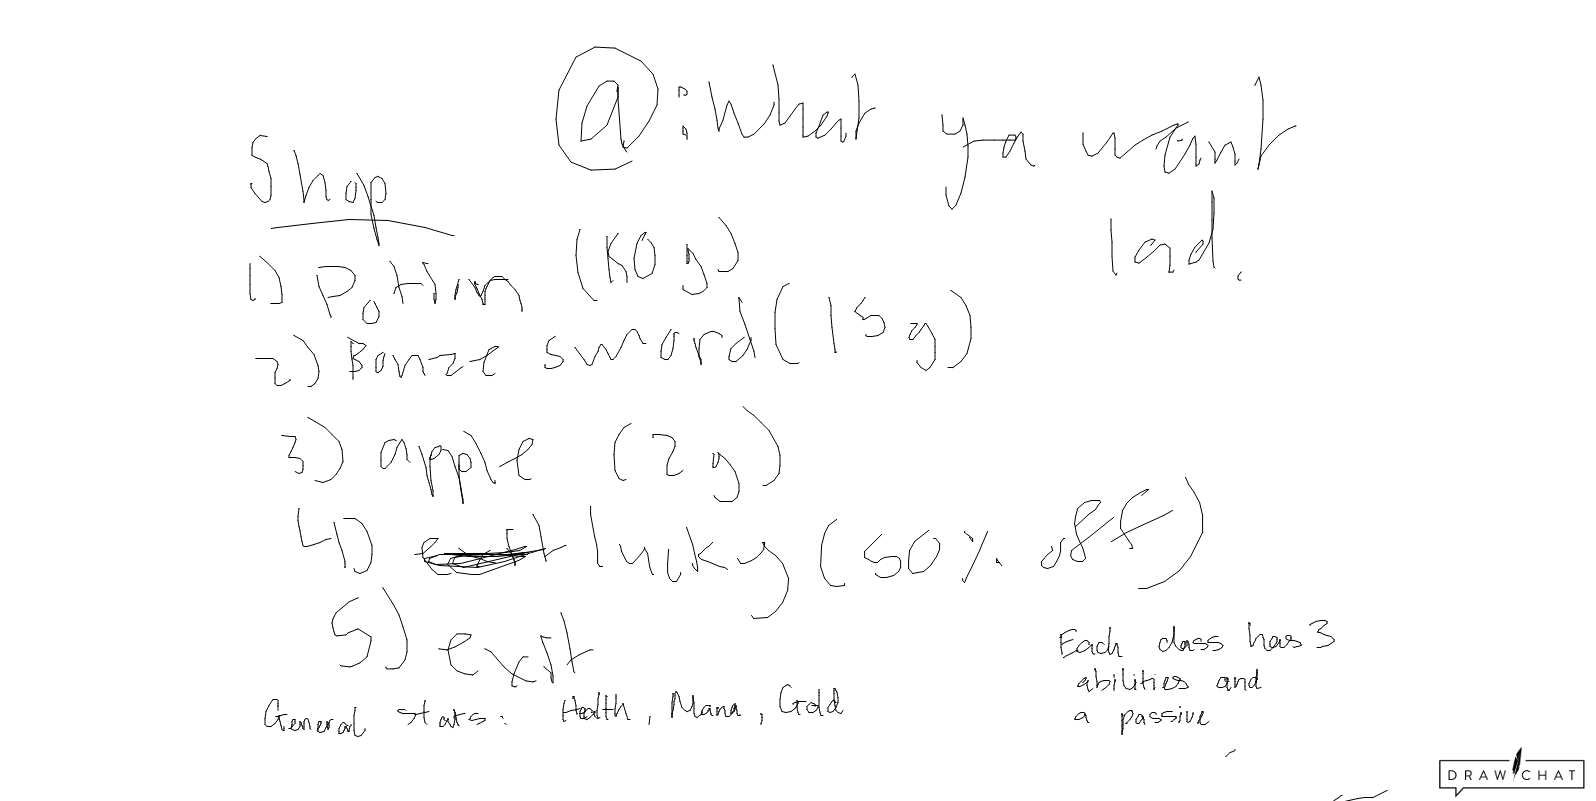 @: What ya want
lad.
Shop
1) Potion (10g)
2) Bonze sword (15g)
3) apple (2g)
4) lucky (50% off)
5) exit
General stats: Health, Mana, Gold
Each class has 3
abilities and
a passive
DRAW CHAT